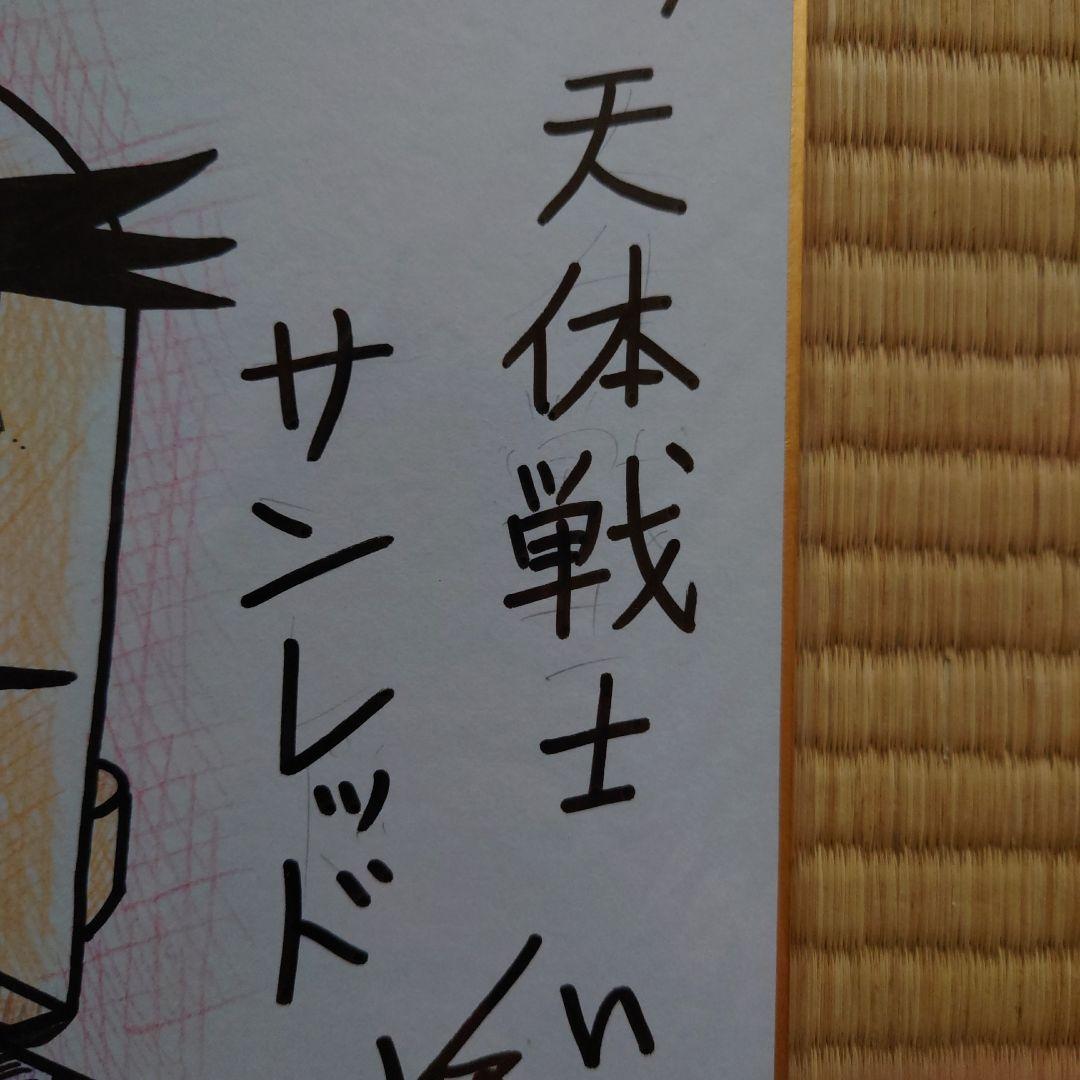 天体戦士
サンレッド